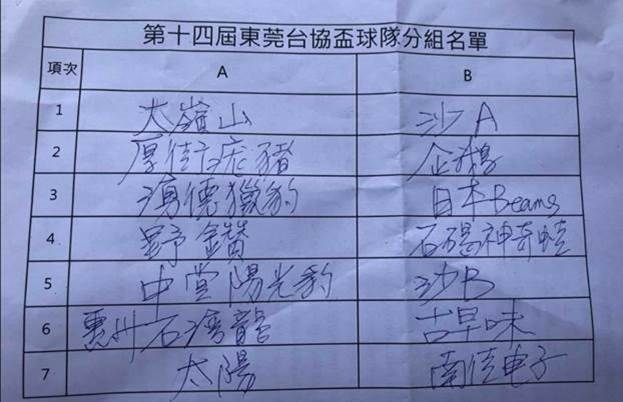 第十四屆東莞台協盃球隊分組名單
項次 A B
1 大嶺山 沙A
2 厚街瘋豬 企鵝
3 湧德獵豹 日本Beams
4 野鑽 石碣神奇蛙
5 中堂陽光豹 沙B
6 惠州石灣龍 古早味
7 太陽 南佳电子